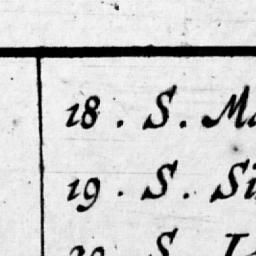 18 . S. Ma
19 . S. Si
20 S